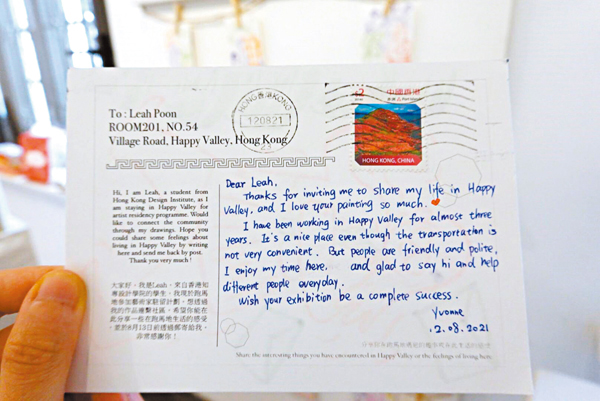 To : Leah Poon
ROOM201, NO.54
Village Road, Happy Valley, Hong Kong
HONG 香港 KONG
120821
$2
中國香港
HONG KONG, CHINA
Hi, I am Leah, a student from
Hong Kong Design Institute, as I
am staying in Happy Valley for
artist residency programme. Would
like to connect the community
through my drawings. Hope you
could share some feelings about
living in Happy Valley by writing
here and send me back by post.
Thank you very much !
大家好，我是Leah，來自香港知
專設計學院的學生。我現於跑馬
地參加藝術家駐留計劃，想透過
我的作品連繫社區，希望你能在
此分享一些在跑馬地生活的感受，
並於8月13日前透過郵寄給我。
非常感謝你！
Dear Leah,
Thanks for inviting me to share my life in Happy
Valley, and I love your painting so much.
I have been working in Happy Valley for almost three
years. It's a nice place even though the transportation is
not very convenient. But people are friendly and polite,
I enjoy my time here. and glad to say hi and help
different people everyday.
Wish your exhibition be a complete success.
Yvonne
12.08.2021
Share the interesting things you have encountered in Happy Valley or the feelings of living here.